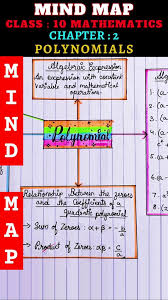 MIND MAP
CLASS : 10 MATHEMATICS
CHAPTER : 2
POLYNOMIALS
MIND
MAP
Algebraic Expression
An expression with constant
variable and mathematical
operations.
Polynomial
Relationship Between the zeroes
and the Coefficients of a
Quadratic polynomial
→ Sum of Zeroes : α+β = -b/a
→ Product of Zeroes : αβ = c/a
1.
2.
3.
4.